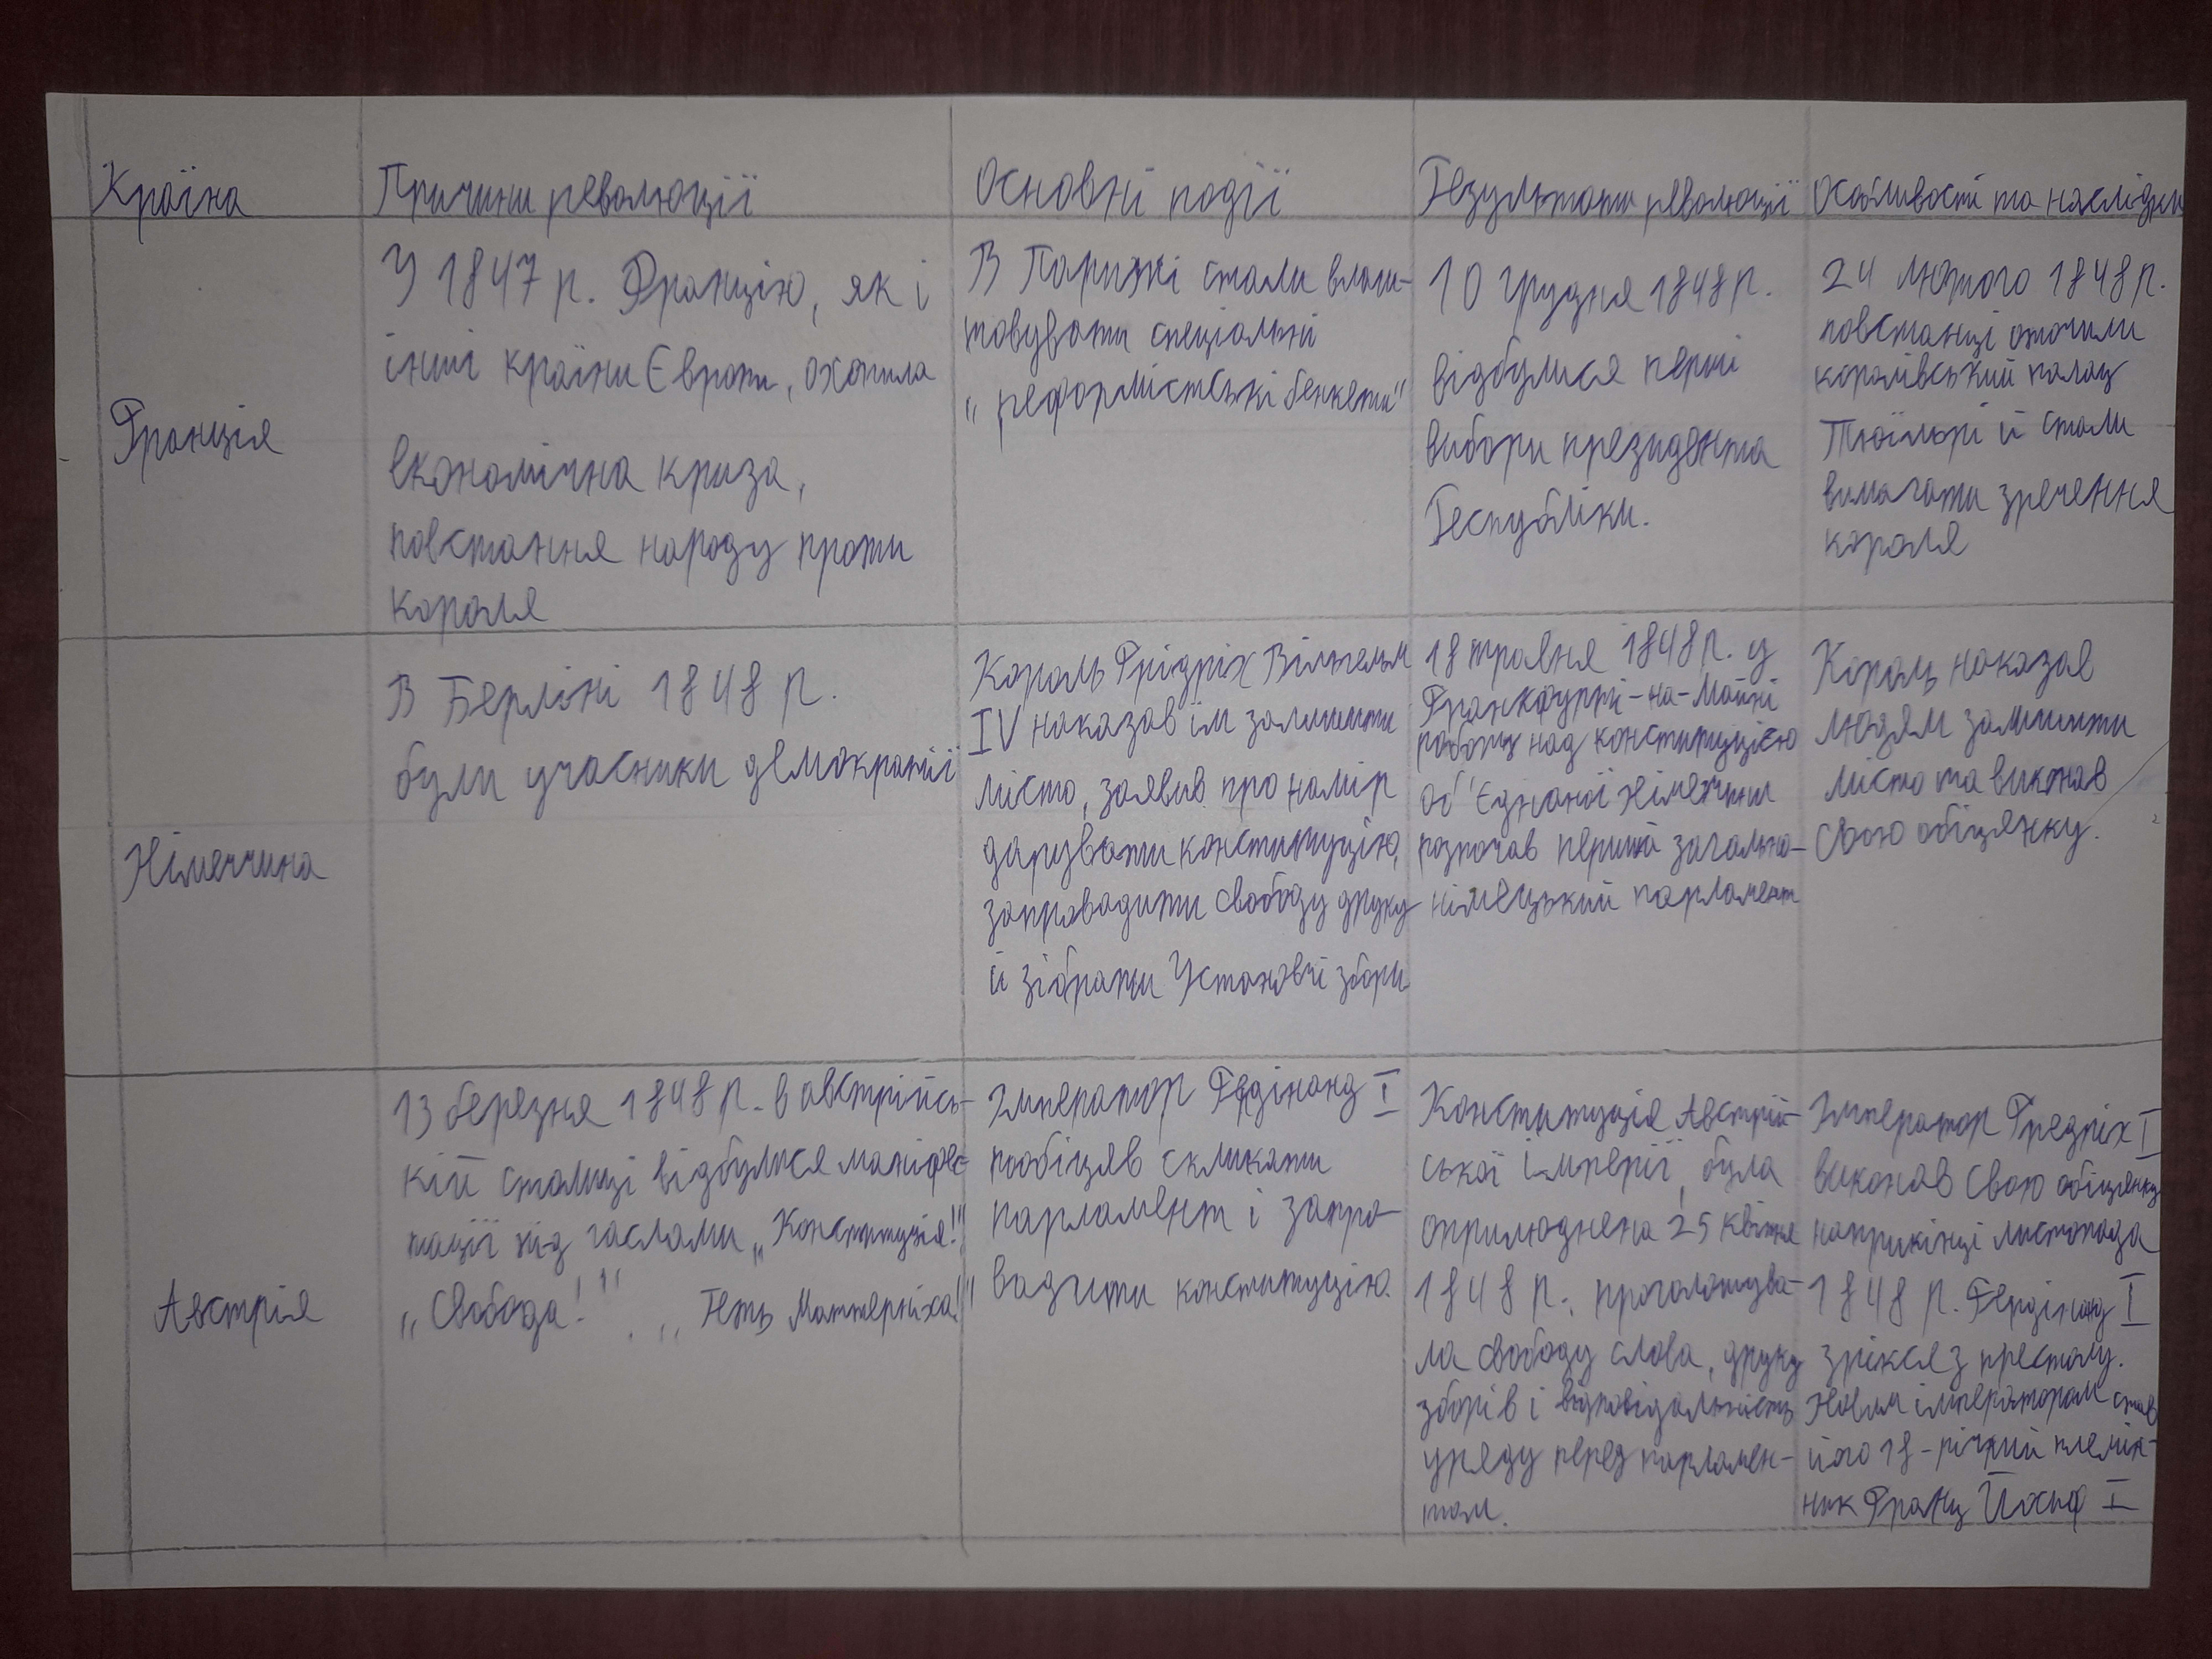 Країна
Причини революції
Основні події
Результати революції
Особливості та наслідки
Франція
У 1847 р. Францію, як і
інші країни Європи, охопила
економічна криза,
повстання народу проти
короля
В Парижі стали влаш-
товувати спеціальні
„реформістські бенкети"
10 грудня 1848 р.
відбулися перші
вибори президента
Республіки.
24 лютого 1848 р.
повстанці оточили
королівський палац
Тюїльрі й стали
вимагати зречення
короля
Німеччина
В Берліні 1848 р.
були учасники демократії
Король Фрідріх Вільгельм
IV наказав їм залишити
місто, заявив про намір
дарувати конституцію,
запровадити свободу друку
й зібрати Установчі збори
18 травня 1848 р. у
Франкфурті-на-Майні
роботу над конституцією
об'єднаної Німеччини
розпочав перший загально-
німецький парламент
Король наказав
людям залишити
місто та виконав
свою обіцянку.
Австрія
13 березня 1848 р. в австрійсь-
кій столиці відбулися маніфес-
тації під гаслами „Конституція!"
„Свобода!". „Геть Маттерніха!"
Імператор Фединанд I
пообіцяв скликати
парламент і запро-
вадити конституцію.
Конституція Австрій-
ської імперії, була
оприлюднена 25 квітня
1848 р., проголошува-
ла свободу слова, друку
зборів і відповідальність
уряду перед парламен-
том.
Імператор Фредріх I
виконав свою обіцянку
наприкінці листопада
1848 р. Фердінанд I
зрікся з престолу.
Новим імператором став
його 18-річний племін-
ник Франц Йосиф I